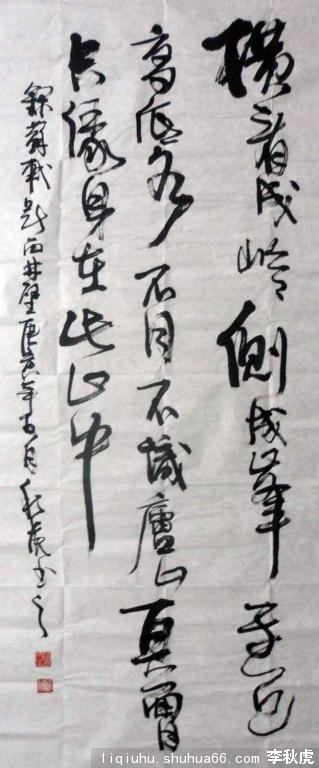 橫看成岭側成峯遠近
高低各不同不識廬山真面目
只緣身在此山中
錄蘇軾題西林壁年五月秋虎书之
liqiuhu.shuhua66.com 李秋虎